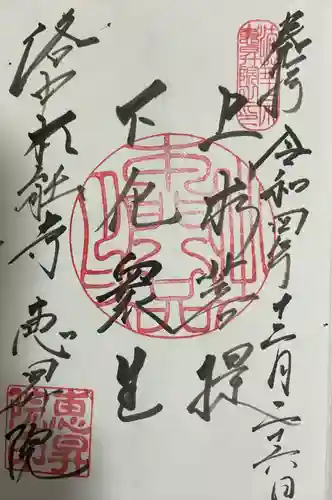 奉拝 令和四年十二月二十六日
上求菩提
下化衆生
洛中本能寺 恵昇院
恵昇